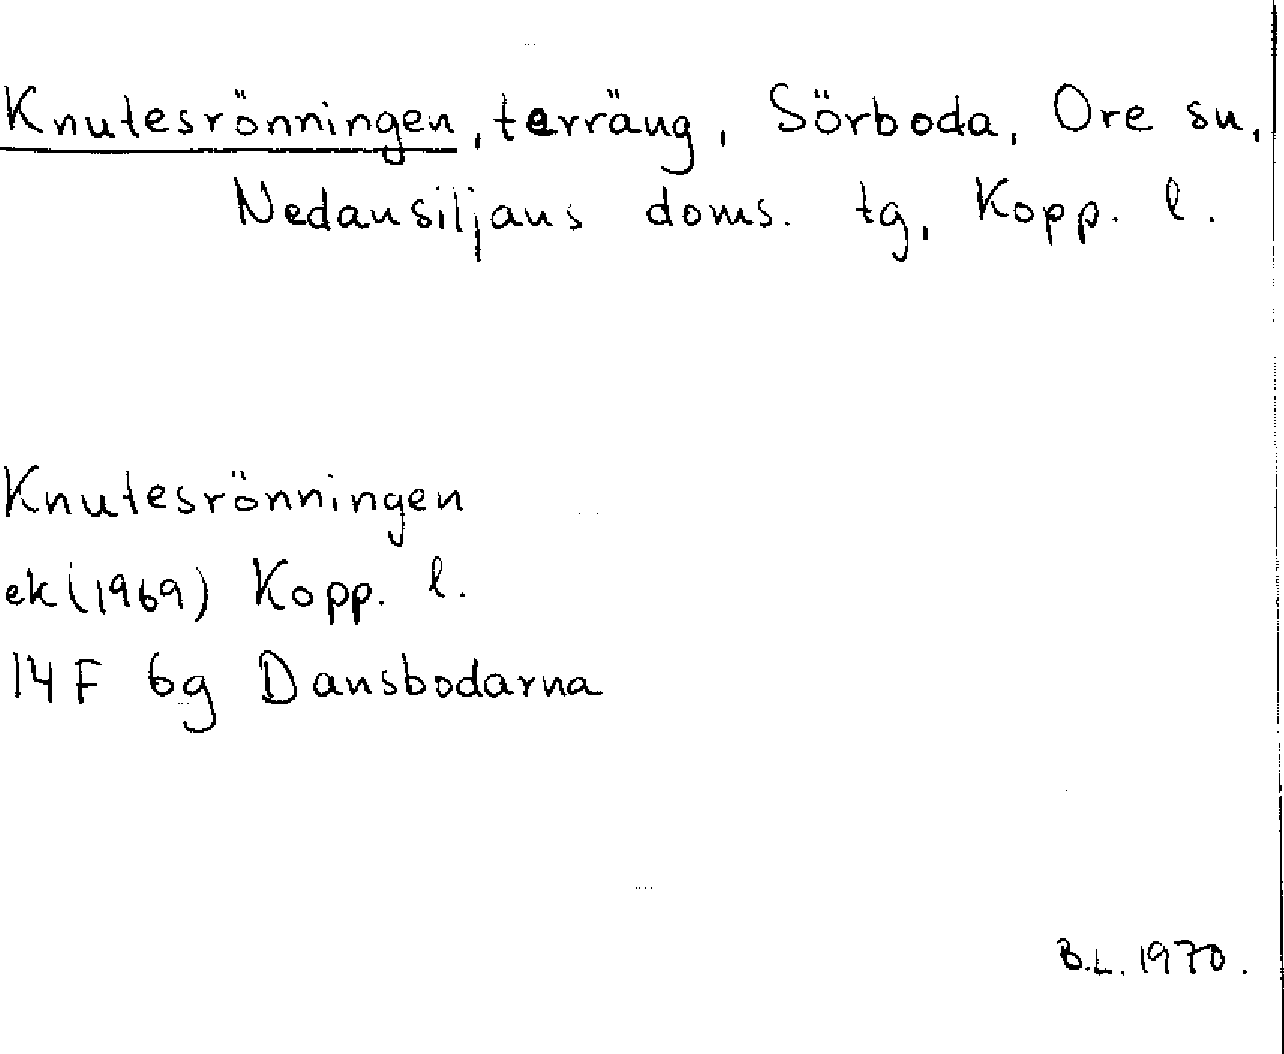 Knutesrönningen, terräng, Sörboda, Ore sn,
Nedansiljans doms. tg, Kopp. l.
Knutesrönningen
ek (1969) Kopp. l.
14 F 6g Dansbodarna
B.L. 1970.